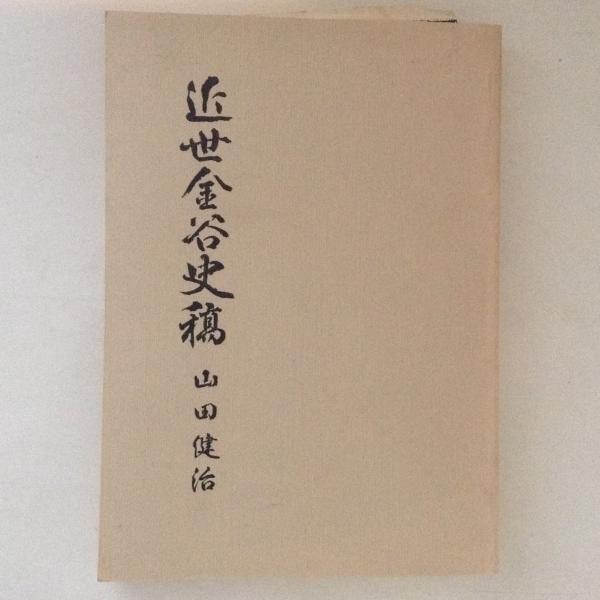 近世金谷史稿 山田健治